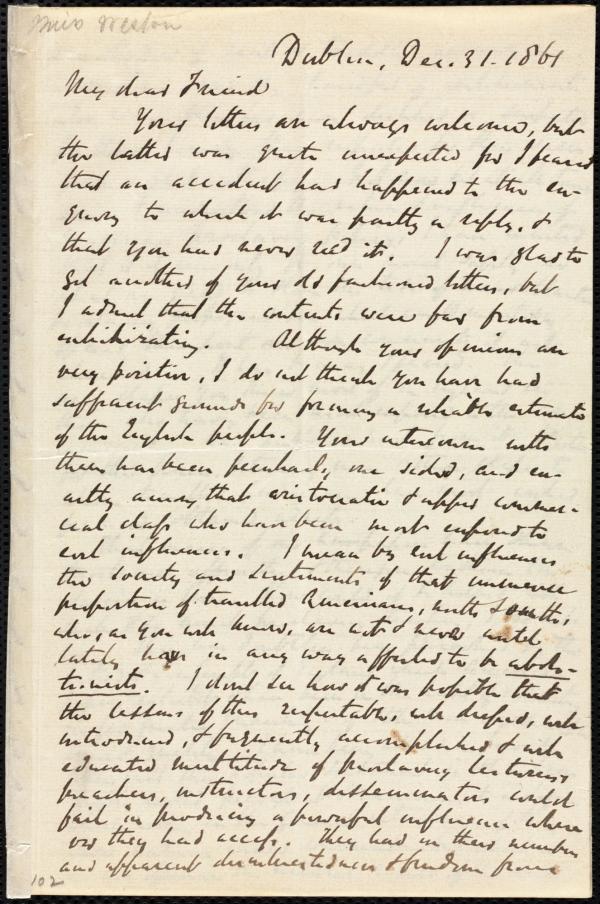 Miss Weston
Dublin, Dec. 31. 1861
My dear Friend
Your letters are always welcome, but
the latter was quite unexpected for I feared
that an accident had happened to the en-
quiry to which it was partly a reply, &
that you had never recd it. I was glad to
get another of your old fashioned letters, but
I admit that the contents were far from
exhilarating. Although your opinions are
very positive, I do not think you have had
sufficient grounds for forming a reliable estimate
of the English people. Your intercourse with
them has been peculiar, one sided, and en-
tirely among that aristocratic & upper commer-
cial class who have been most exposed to
evil influences. I mean by evil influences
the society and sentiments of that immense
proportion of travelled Americans, north & south,
who, as you well know, are not & never until
lately have in any way affected to be aboli-
tionists. I don't see how it was possible that
the lessons of this respectable, well dressed, well
introduced, & frequently accomplished & well
educated multitude of proslavery lecturers
preachers, instructors, disseminators could
fail in producing a powerful influence where
ver they had access. They had in their numbers
and apparent disinterestedness & freedom from
102